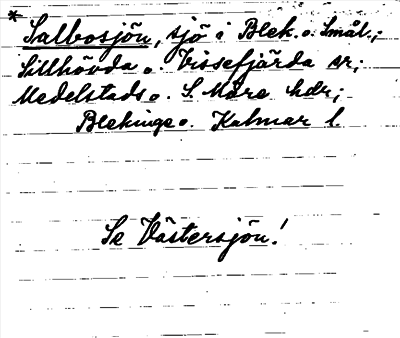 * Salbosjön, sjö i Blek. o. Smål.;
Sillhövda o. Vissefjärda sr;
Medelstads o. S. Möre hdr;
Blekinge o. Kalmar l.
Se Västersjön!